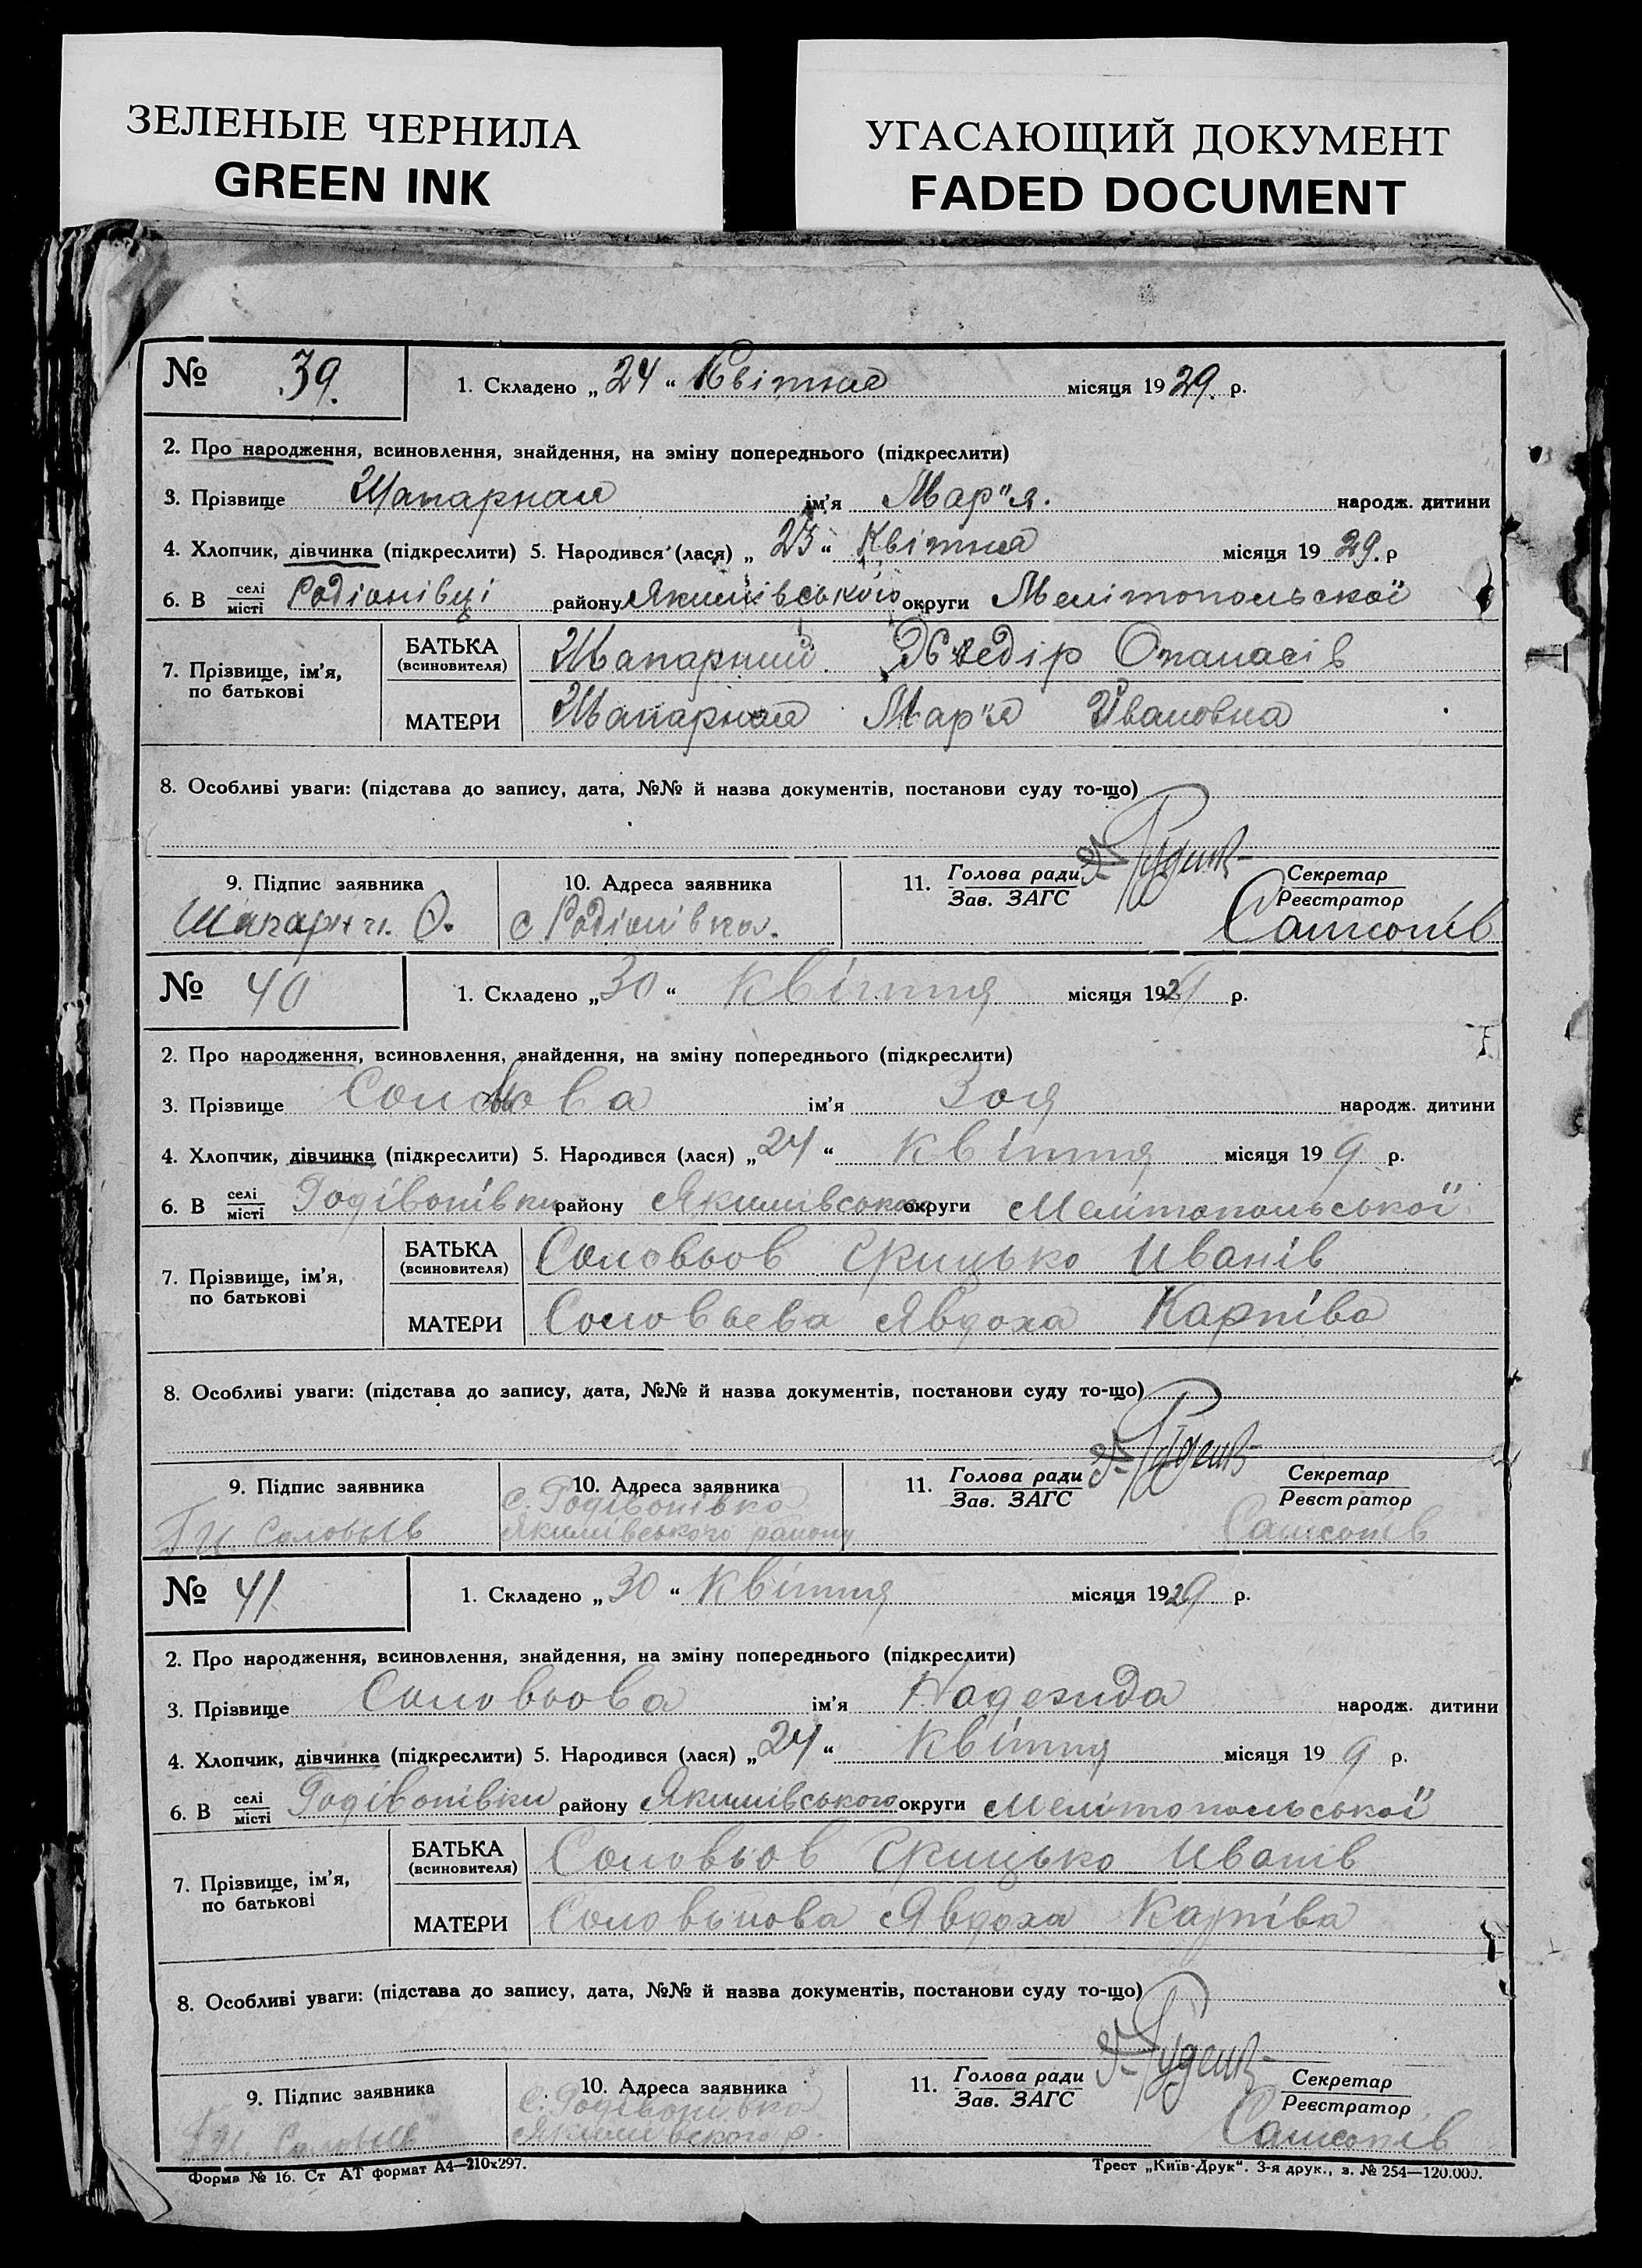 ЗЕЛЕНЫЕ ЧЕРНИЛА
GREEN INK
УГАСАЮЩИЙ ДОКУМЕНТ
FADED DOCUMENT
№ 39. 1. Складено „24“ Квітня місяця 1929. р.
2. Про народження, всиновлення, знайдення, на зміну попереднього (підкреслити)
3. Прізвище Шапарная ім'я Мар"я. народж. дитини
4. Хлопчик, дівчинка (підкреслити) 5. Народився (лася) „23“ Квітня місяця 1929. р
6. В селі/місті Родіонівці району Якимівського округи Мелітопольскої
7. Прізвище, ім'я, по батькові
БАТЬКА (всиновителя) Шапарний Хведір Опанасів
МАТЕРИ Шапарная Мар"я Івановна
8. Особливі уваги: (підстава до запису, дата, №№ й назва документів, постанови суду то-що)
9. Підпис заявника 10. Адреса заявника 11. Голова ради Зав. ЗАГС Секретар Реєстратор
Шапарн О. с Родіонівка. Самсонів
№ 40 1. Складено „30“ квітня місяця 1929 р.
2. Про народження, всиновлення, знайдення, на зміну попереднього (підкреслити)
3. Прізвище Соловьова ім'я Зоя народж. дитини
4. Хлопчик, дівчинка (підкреслити) 5. Народився (лася) „24“ квітня місяця 19 9 р.
6. В селі/місті Родівонівки району Якимівського округи Мелітопольської
7. Прізвище, ім'я, по батькові
БАТЬКА (всиновителя) Соловьов Грицько Иванів
МАТЕРИ Соловьева Явдоха Карпіва
8. Особливі уваги: (підстава до запису, дата, №№ й назва документів, постанови суду то-що)
9. Підпис заявника 10. Адреса заявника 11. Голова ради Зав. ЗАГС Секретар Реєстратор
с. Родівонівка
Г И. Соловьів Якимівського району Самсонів
№ 41 1. Складено „30“ Квітня місяця 1929 р.
2. Про народження, всиновлення, знайдення, на зміну попереднього (підкреслити)
3. Прізвище Соловьова ім'я Надежида народж. дитини
4. Хлопчик, дівчинка (підкреслити) 5. Народився (лася) „24“ квітня місяця 19 9 р.
6. В селі/місті Родівонівки району Якимівського округи Мелітопольської
7. Прізвище, ім'я, по батькові
БАТЬКА (всиновителя) Соловьов Грицько Иванів
МАТЕРИ Соловьйова Явдоха Карпіва
8. Особливі уваги: (підстава до запису, дата, №№ й назва документів, постанови суду то-що)
9. Підпис заявника 10. Адреса заявника 11. Голова ради Зав. ЗАГС Секретар Реєстратор
с. Родівонівка
Г.И. Соловьів Якимівского р. Самсонів
Форма № 16. Ст АТ формат А4—210х297. Трест „Київ-Друк“. 3-я друк., з. № 254—120.000.